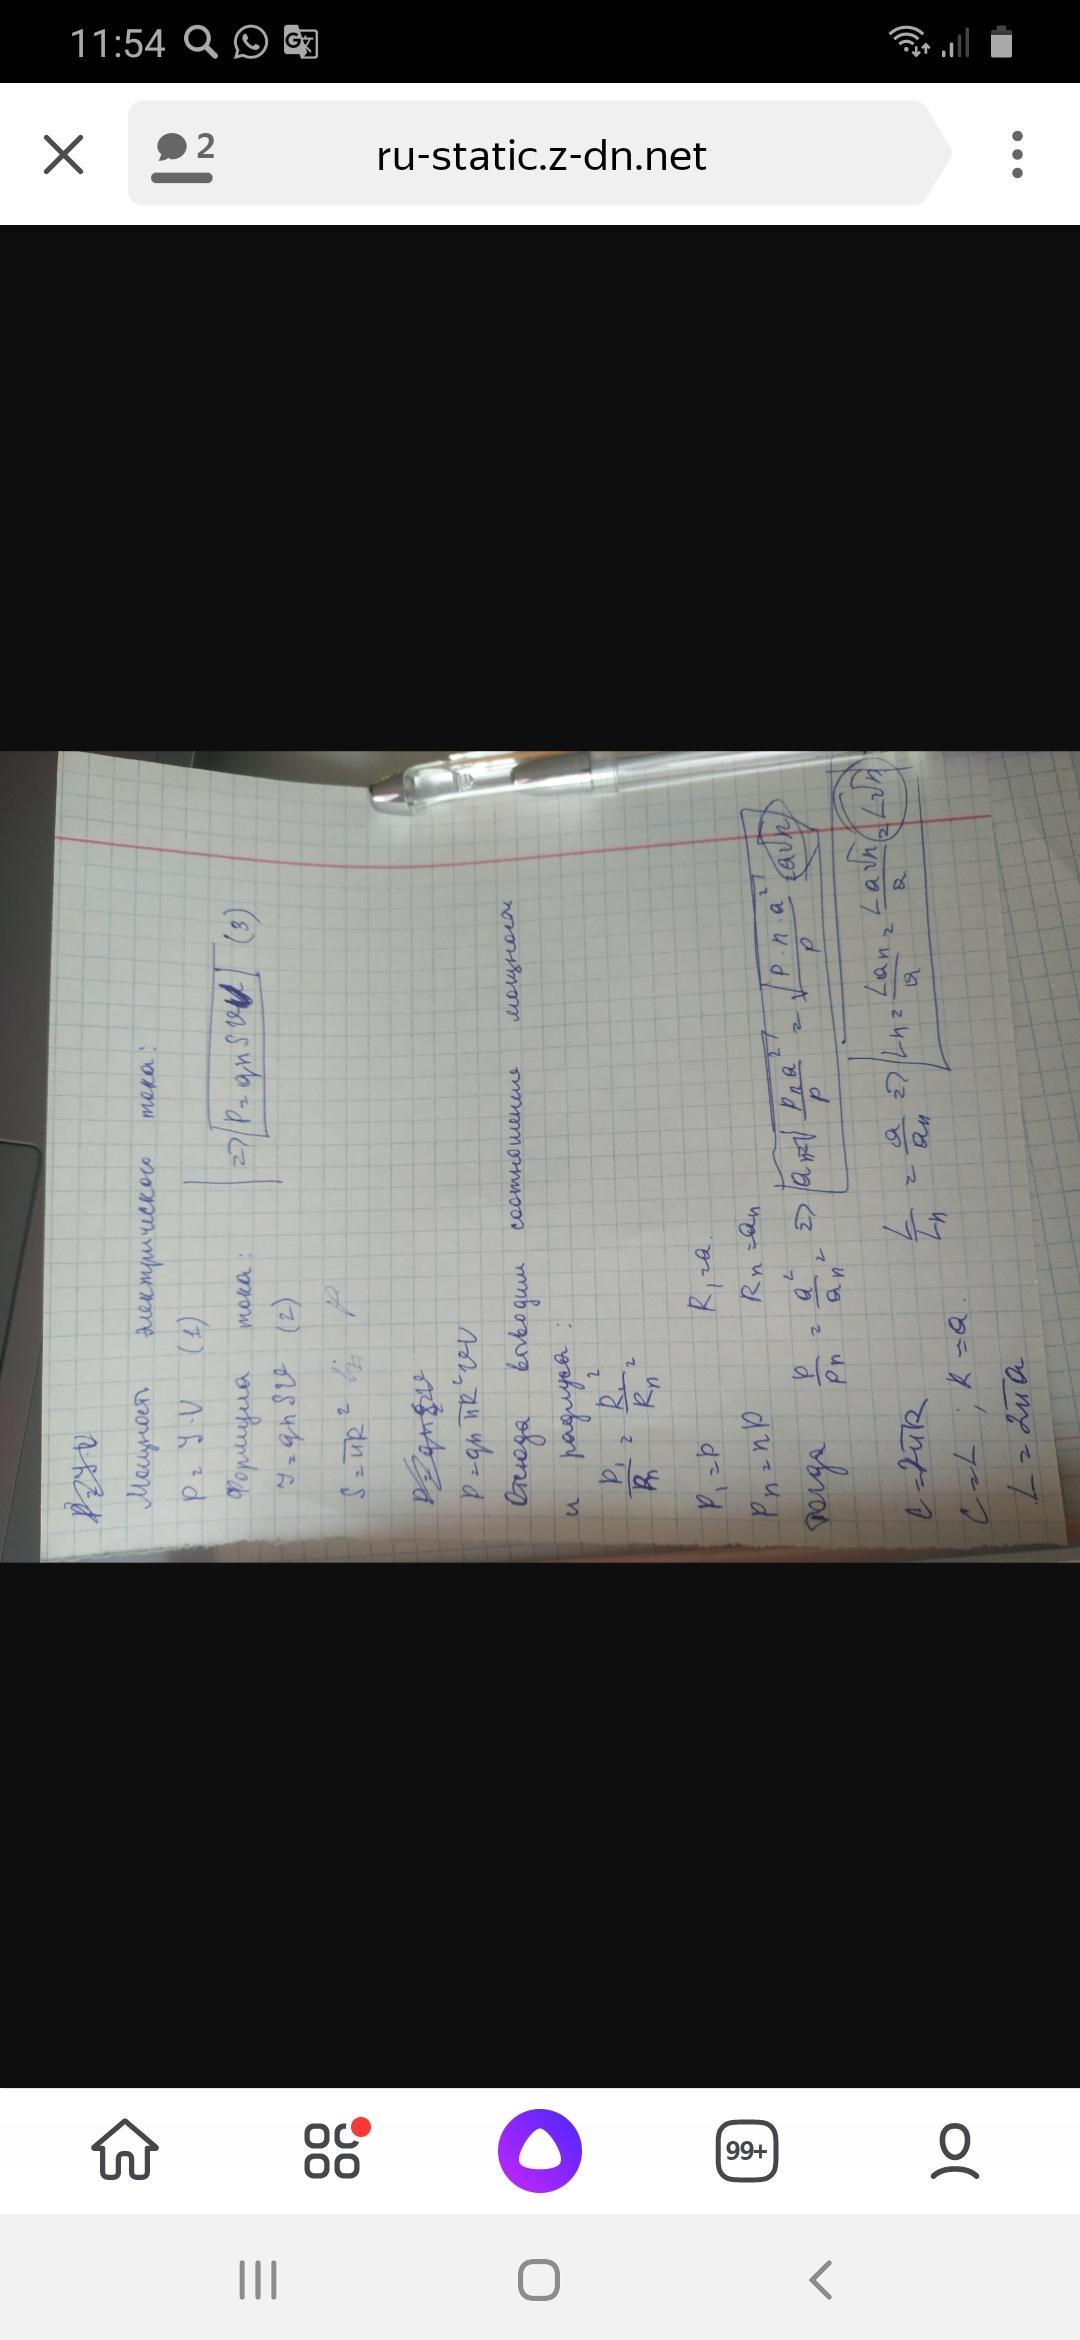 11:54
2
ru-static.z-dn.net
Мощность электрического тока:
P = У·V (1)
Формула тока:
У = qnSv (2)
=> P = qnSvV (3)
S = πR²
P = qnπR²vV
Отсюда выводим соотношение мощности
и радиуса:
P₁/Pn = R₁²/Rn²
P₁ = P R₁ = a
Pn = nP Rn = an
Тогда P/Pn = a²/an² => an = √(Pn a²/P) = √(P·n·a²/P) = a√n
C = 2πR L/Ln = a/an => Ln = Lan/a = La√n/a = L√n
C = L ; R = a.
L = 2πa
99+